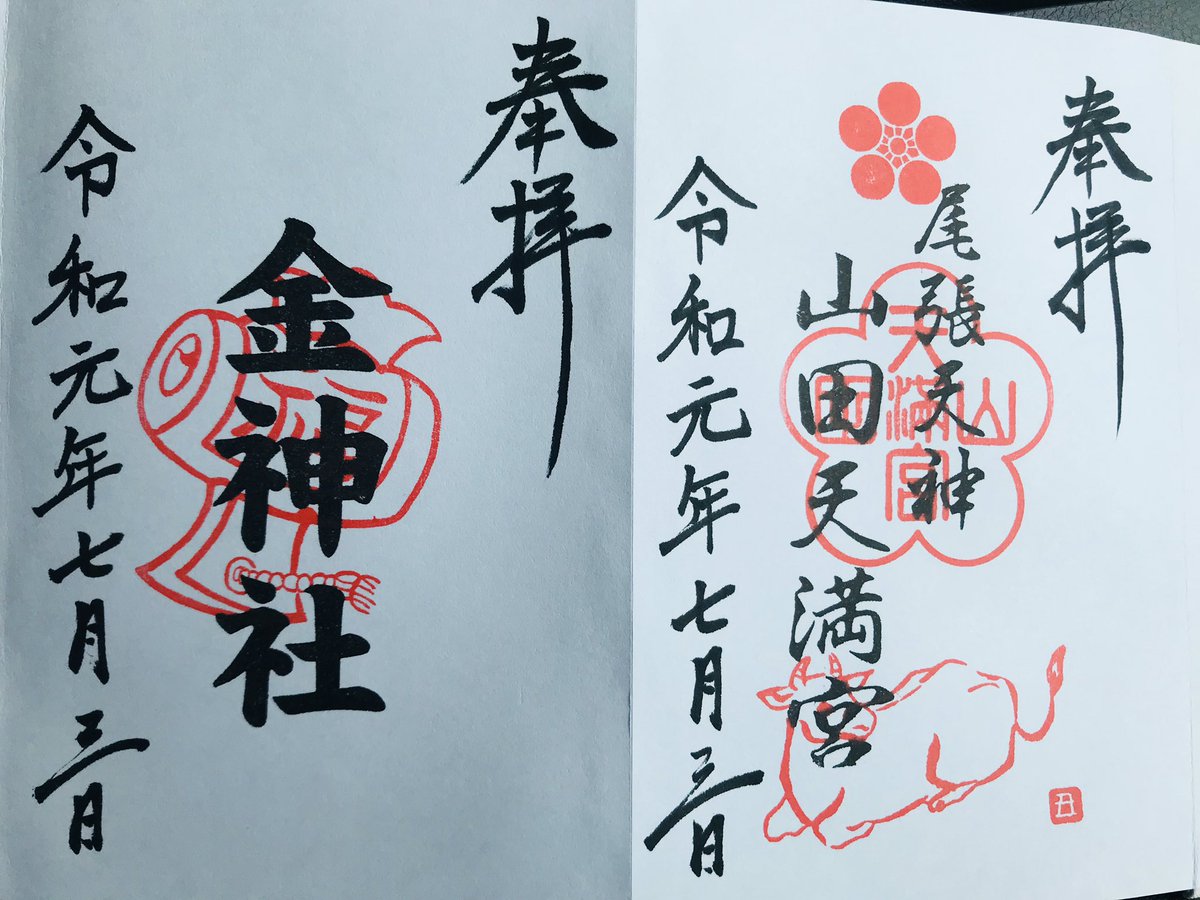 奉拝
尾張天神
山田天満宮
山
天満宮
田
丑
令和元年七月三日
奉拝
金神社
令和元年七月三日